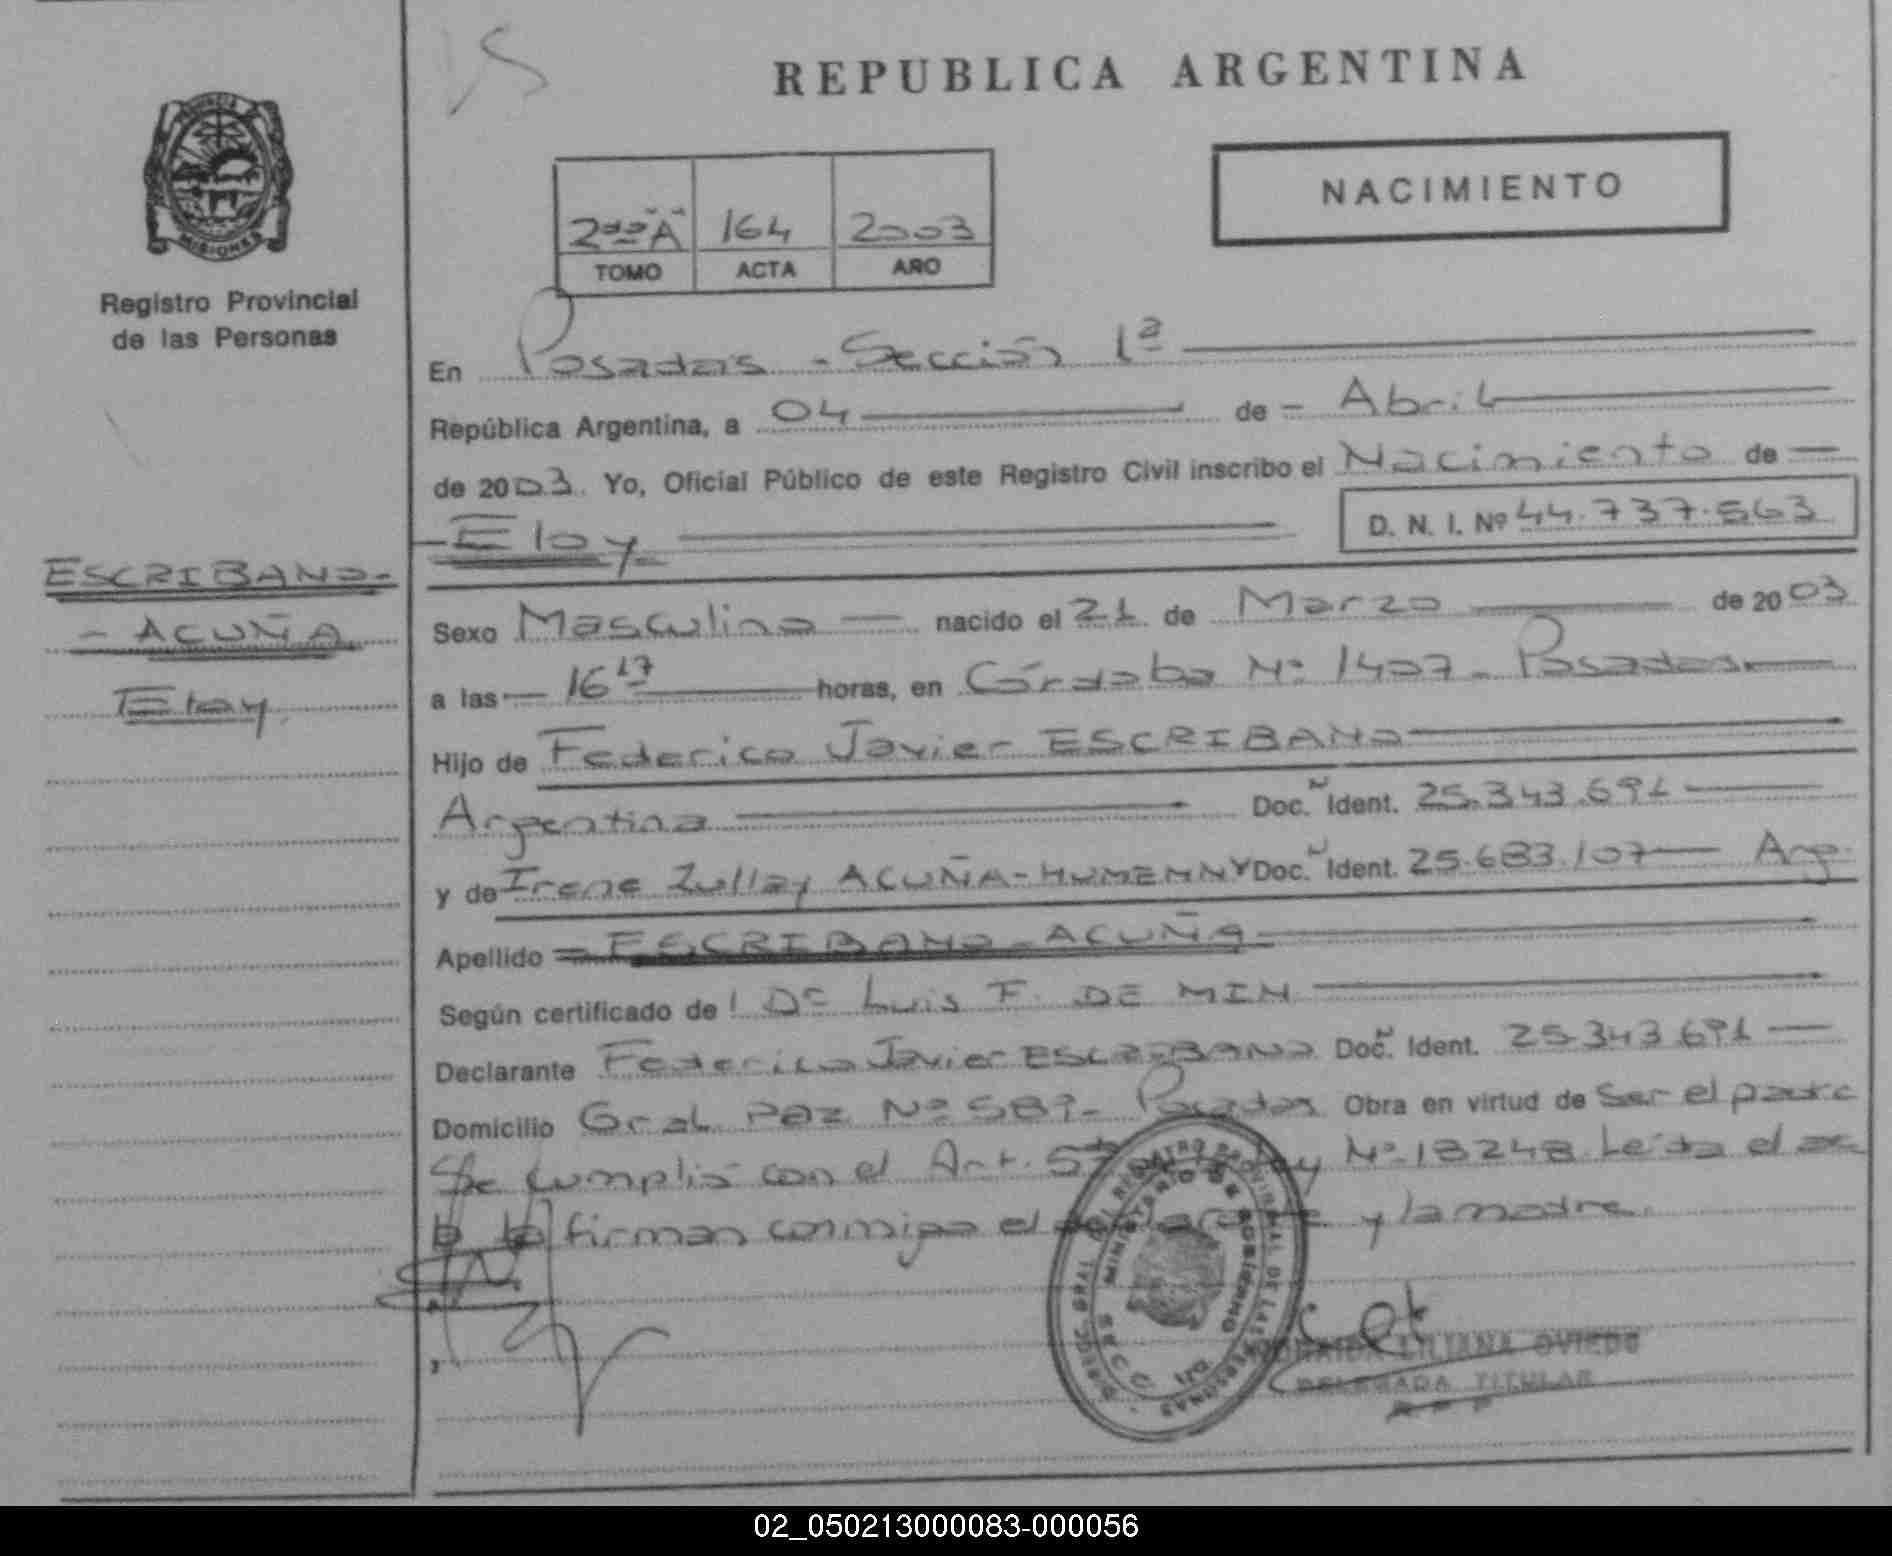 PROVINCIA
MISIONES
Registro Provincial
de las Personas
ESCRIBANO-
- ACUÑA
Eloy
REPUBLICA ARGENTINA
NACIMIENTO
2do "A" 164 2003
TOMO ACTA AÑO
En Posadas - Sección 1ª
República Argentina, a 04 de - Abril
de 2003. Yo, Oficial Público de este Registro Civil inscribo el Nacimiento de
- Eloy
D. N. I. Nº 44.737.563
Sexo Masculino nacido el 21 de Marzo de 2003
a las 16 17 horas, en Córdoba Nº 1407 - Posadas
Hijo de Federico Javier ESCRIBANO
Argentina Doc. Ident. 25.343.691
y de Irene Zullay ACUÑA-HUMENNY Doc. Ident. 25.683.107 Arg.
Apellido = ESCRIBANO - ACUÑA
Según certificado de Dr Luis F. DE MIN
Declarante Federico Javier ESCRIBANO Doc. Ident. 25.343.691
Domicilio Gral Paz Nº 589 - Posadas Obra en virtud de Ser el padre
Se cumplió con el Art. 5to Ley Nº 18248. Leída el ac
ta firman conmigo el declarante y la madre.
DIRECC. GRAL. DEL REGISTRO PROVINCIAL DE LAS PERSONAS
MINISTERIO DE GOBIERNO
SECC. 1ra.
LILIANA OVIEDO
DELEGADA TITULAR
02_050213000083-000056